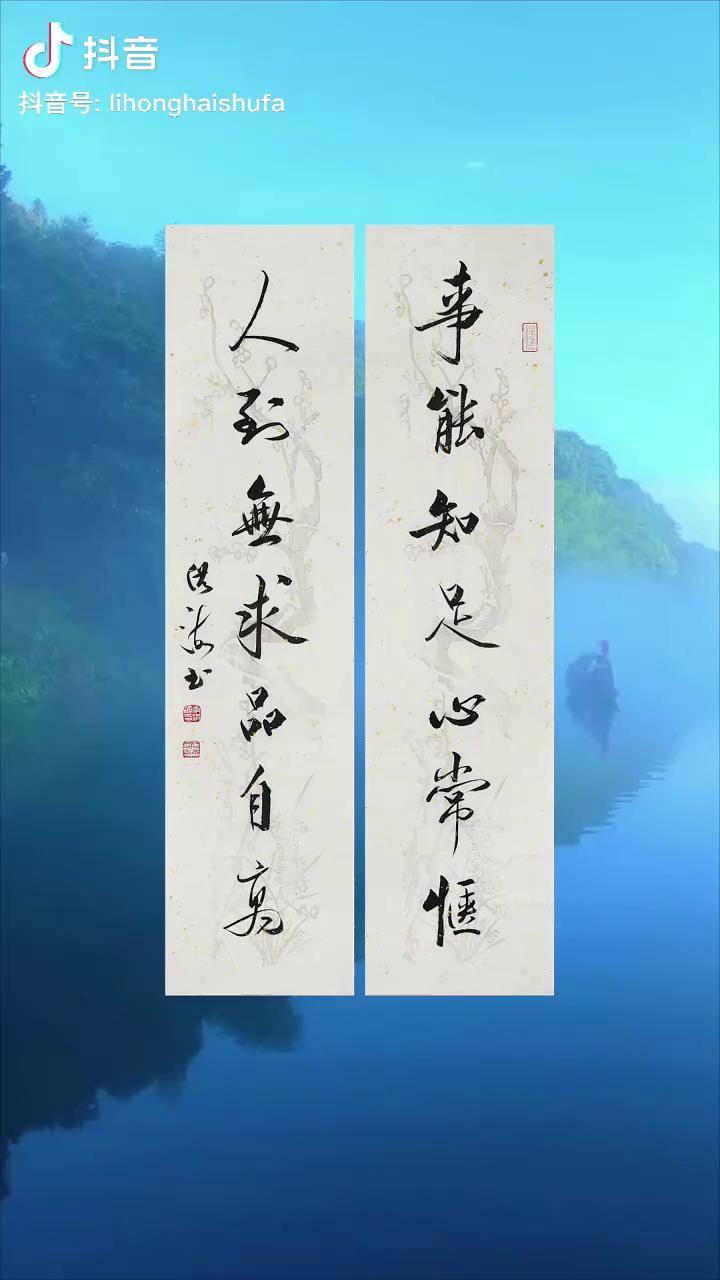 抖音
抖音号: lihonghaishufa
事能知足心常惬
人到無求品自高
洪海书